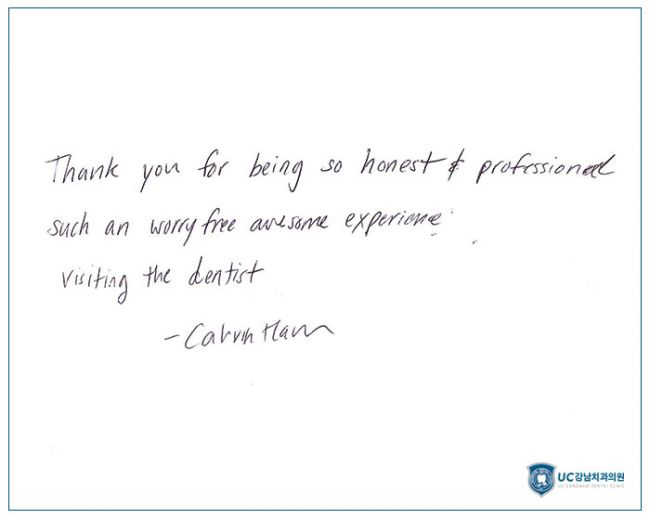 Thank you for being so honest & professional
such an worry free awesome experience
visiting the dentist
- Calvin Ham
UC강남치과의원
UC GANGNAM DENTAL CLINIC